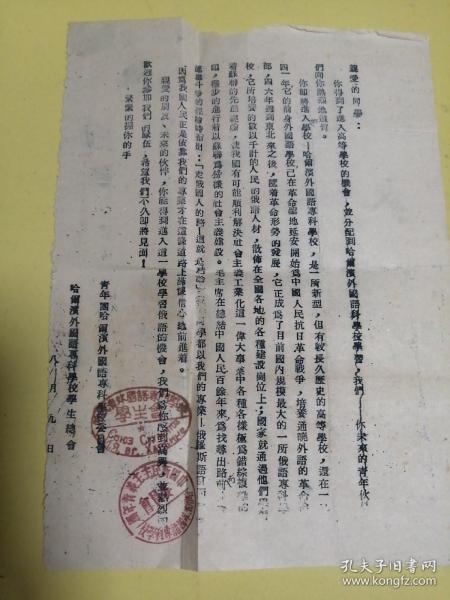 親愛的同學：
你得到了進入高等學校的機會，並分配到哈爾濱外國語專科學校學習，我們——你未來的青年伙
們向你熱烈地道賀。
你即將進入學校——哈爾濱外國語專科學校，是一所新型，但有較長久歷史的高等學校，還在一
四一年它的前身外國語學校已在革命聖地延安開始爲中國人民抗日革命戰爭，培養通曉外語的革命
部，四六年遷到東北來之後，隨着革命形勢的發展，它正成爲了目前國內規模最大的一所俄語專科學
校，它所培養的數以千計的人民的俄語人材，散佈在全國各地的各種建設崗位上；國家就通過他們
着蘇聯的先進經驗，使我國有可能順利解決社會主義工業化這一偉大事業中各種各樣極爲錯綜複雜的
題，穩步的進行着以蘇聯爲榜樣的社會主義建設。毛主席在總結中國人民百餘年來爲找尋出路而
鬥爭的經驗時指出：「走俄國人的路——這就是結論」同學都以我們的專業——俄羅斯語
因爲我國人民正是依靠我們的專業才在這條道路上滿懷信心地前進着。
親愛的朋友、未來的伙伴，你能得到進入這一學校學習俄語的機會，我們爲你感到高興，並熱烈的
歡迎你參加我們的隊伍，希望我們不久即將見面！
緊緊的握你的手
青年團哈爾濱外國語專科學校委員會
哈爾濱外國語專科學校學生總會
八月 九日
學生會
孔夫子旧书网
www.kongfz.com